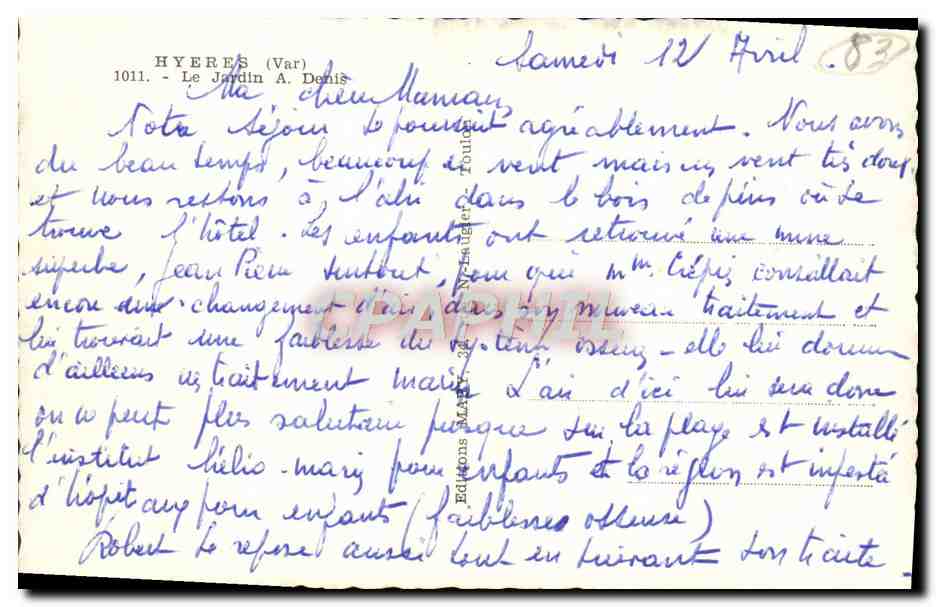 HYERES (Var)
1011. - Le Jardin A. Denis
Samedi 12 Avril.
83
Ma chère Maman,
Notre séjour se poursuit agréablement. Nous avons
du beau temps, beaucoup de vent mais un vent très doux,
et nous restons à l'abri dans le bois de pins où se
trouve l'hôtel. Les enfants ont retrouvé une mine
superbe, Jean Pierre surtout, pour qui Mme conseillait
encore un changement d'air dans son nouveau traitement et
lui trouvait une faiblesse du système osseux - elle lui donne
d'ailleurs un traitement marin. L'air d'ici lui sera donc
on ne peut plus salutaire puisque sur la plage est installé
l'institut hélio-marin pour enfants et la région est infestée
d'hôpitaux pour enfants (faiblesse osseuse)
Robert se repose aussi tout en suivant son traite
Editions MAR N. Laugier - Toulon
CPAPHIL